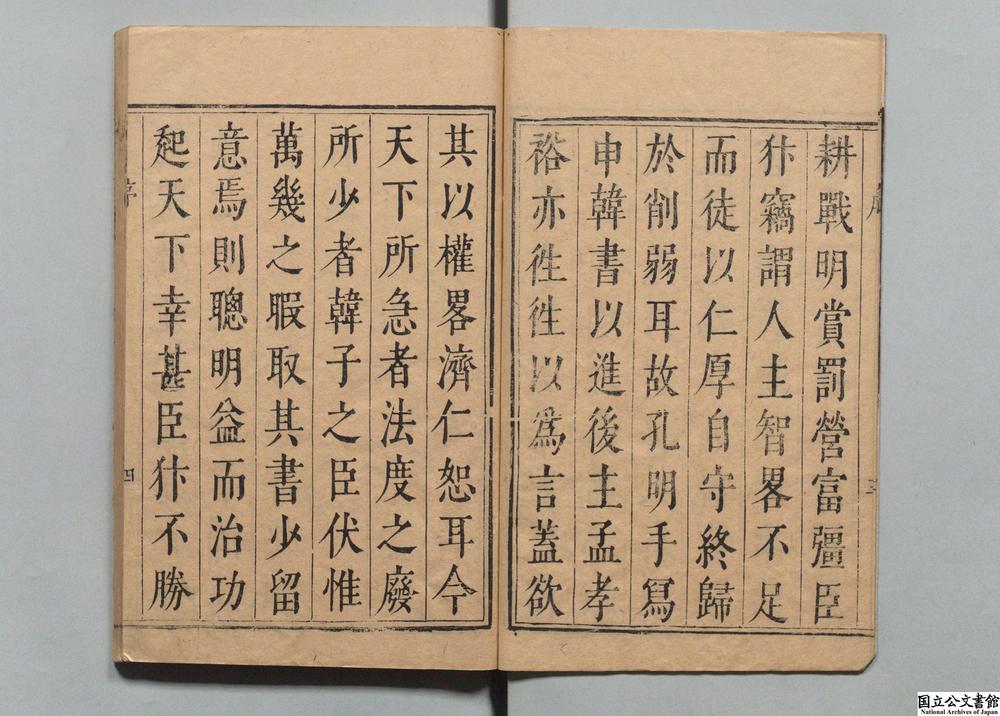 耕戰明賞罰營富彊臣
犿竊謂人主智畧不足
而徒以仁厚自守終歸
於削弱耳故孔明手寫
申韓書以進後主孟孝
裕亦徃徃以爲言蓋欲
其以權畧濟仁恕耳今
天下所急者法度之廢
所少者韓子之臣伏惟
萬幾之暇取其書少留
意焉則聰明益而治功
起天下幸甚臣犿不勝
序
四
国立公文書館
National Archives of Japan